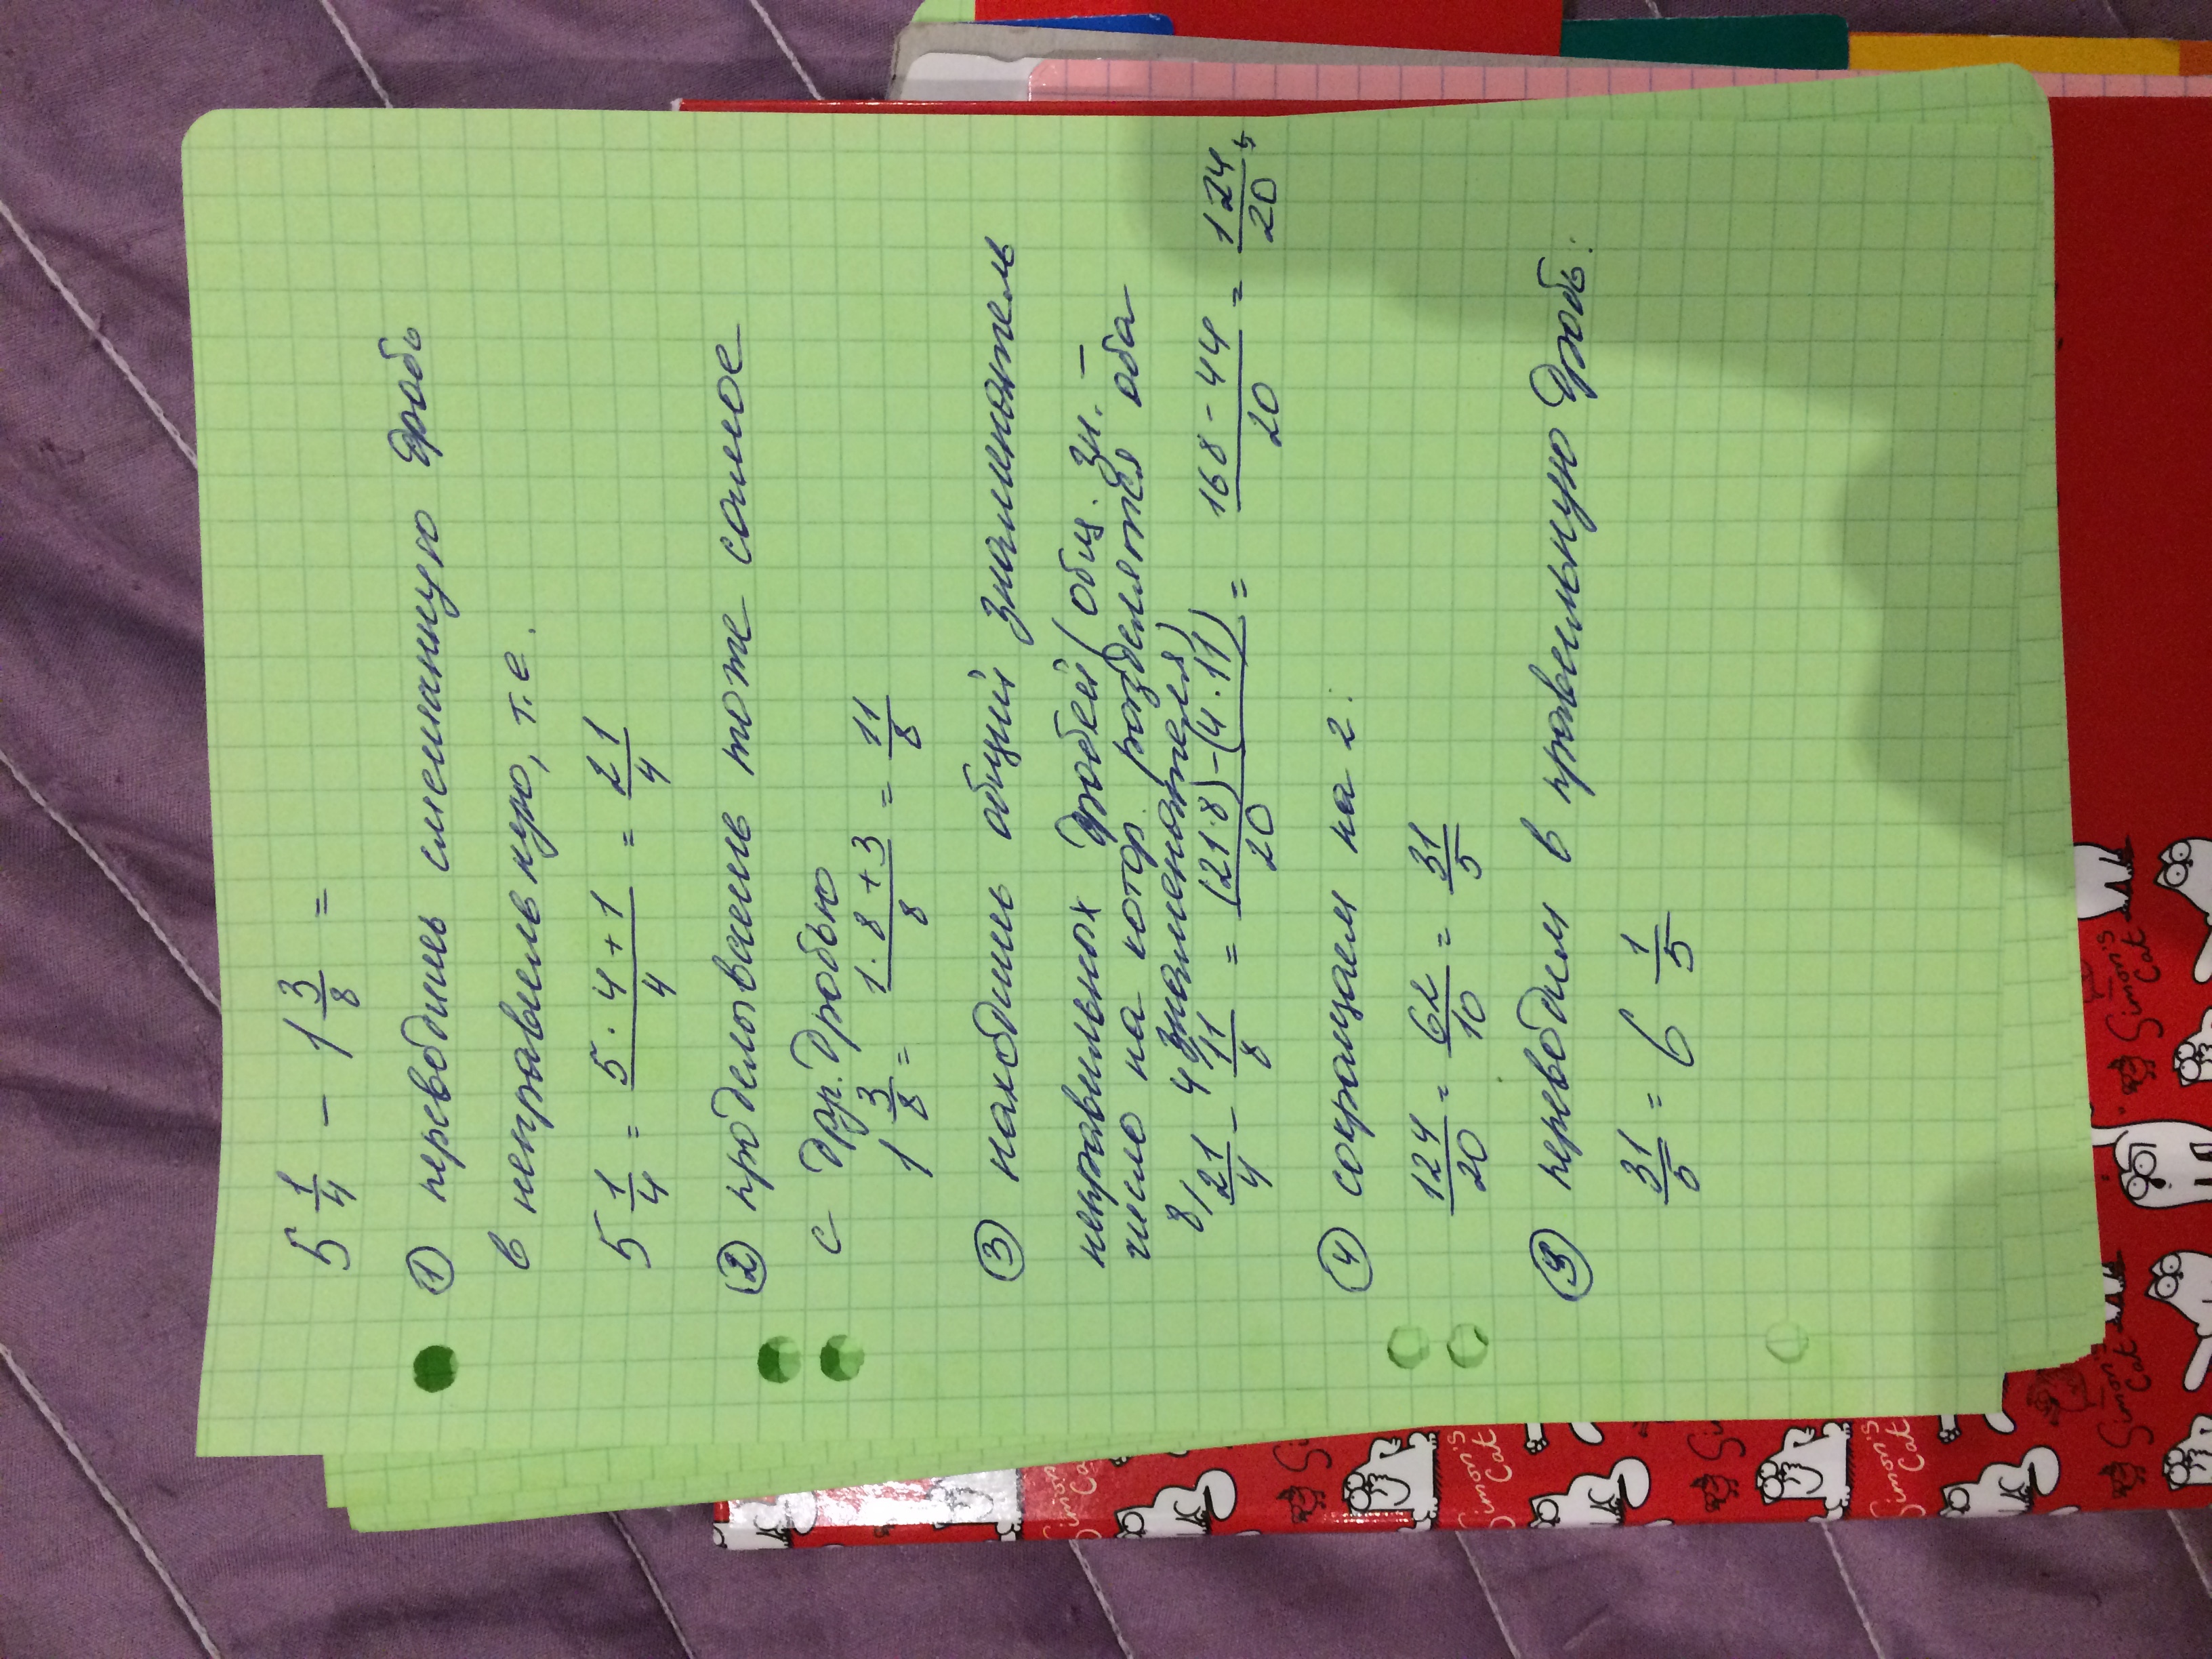 5 1/4 - 1 3/8 =
① переводишь смешанную дробь
в неправильную, т.е.
5 1/4 = (5 · 4 + 1)/4 = 21/4
② проделываешь тоже самое
с др. дробью
1 3/8 = (1 · 8 + 3)/8 = 11/8
③ находишь общий знаменатель
неправильных дробей (общ. зн. -
число на котор. разделятся оба
знаменателя)
8/ 21/4 - 4/ 11/8 = ((21·8) - (4·11))/20 = (168 - 44)/20 = 124/20 ↳
④ сокращаем на 2:
124/20 = 62/10 = 31/5
⑤ переводим в правильную дробь:
31/5 = 6 1/5
Simon's
Cat
Simon's
Cat
Simon's
Cat
Simon's
Cat
Simon's
Cat